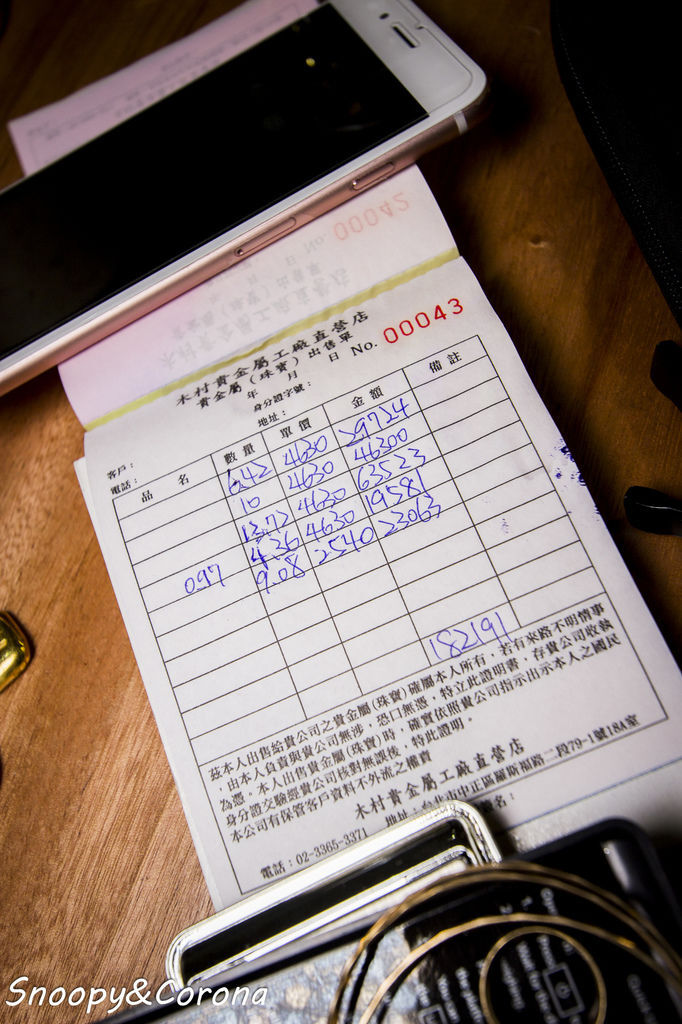 No. 00042
木村貴金屬工廠直營店
貴金屬（珠寶）出售單
年 月 日 No. 00043
身分證字號：
地址：
客戶：
電話：
品名 數量 單價 金額 備註
6.42 4630 29724
10 4630 46300
13.72 4630 63523
4.36 4630 19581
097 9.08 2540 23063
182191
茲本人出售給貴公司之貴金屬(珠寶)確屬本人所有，若有來路不明情事
，由本人負責與貴公司無涉，恐口無憑，特立此證明書，存貴公司收執
為憑。本人出售貴金屬(珠寶)時，確實依照貴公司指示出示本人之國民
身分證交驗經貴公司核對無誤後，特此證明。
本公司有保管客戶資料不外流之權責
木村貴金屬工廠直營店
電話：02-3365-3371 地址：台北市中正區羅斯福路二段79-1號18A室
Snoopy&Corona